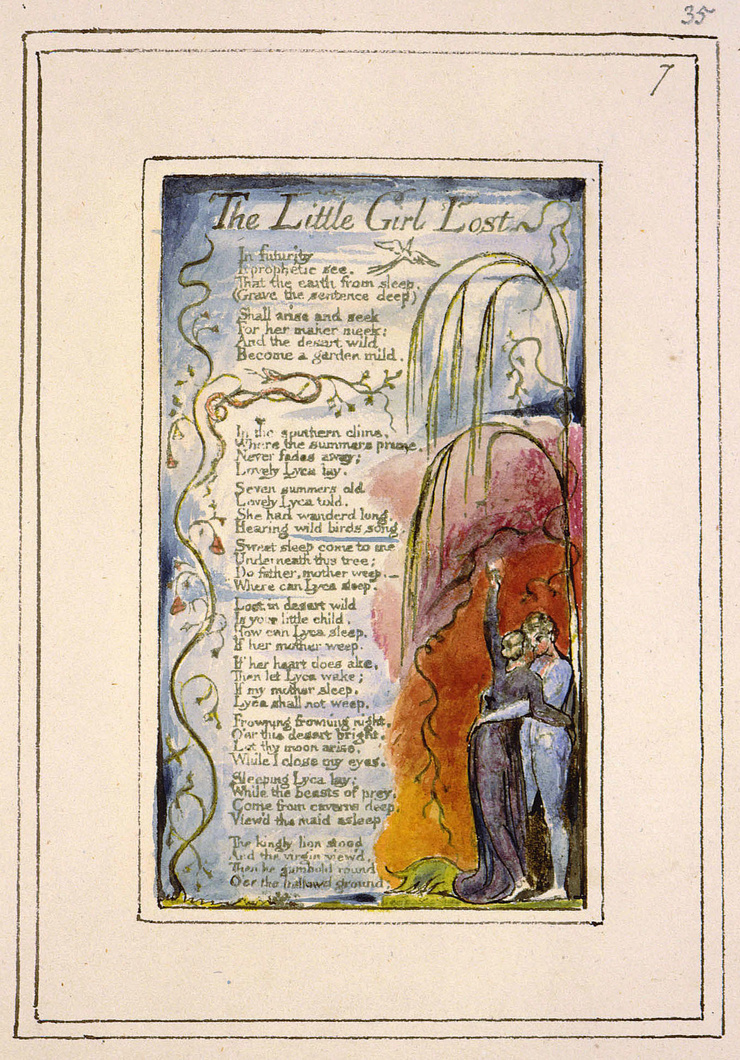 35
7
The Little Girl Lost
In futurity
I prophetic see.
That the earth from sleep.
(Grave the sentence deep)
Shall arise and seek
For her maker meek:
And the desart wild
Become a garden mild.
In the southern clime,
Where the summers prime,
Never fades away;
Lovely Lyca lay.
Seven summers old
Lovely Lyca told,
She had wanderd long,
Hearing wild birds song.
Sweet sleep come to me
Underneath this tree;
Do father, mother weep.—
Where can Lyca sleep.
Lost in desart wild
Is your little child.
How can Lyca sleep,
If her mother weep.
If her heart does ake,
Then let Lyca wake;
If my mother sleep,
Lyca shall not weep.
Frowning frowning night,
O'er this desart bright,
Let thy moon arise,
While I close my eyes.
Sleeping Lyca lay;
While the beasts of prey,
Come from caverns deep,
View'd the maid asleep
The kingly lion stood
And the virgin view'd,
Then he gambold round
O'er the hallowd ground;